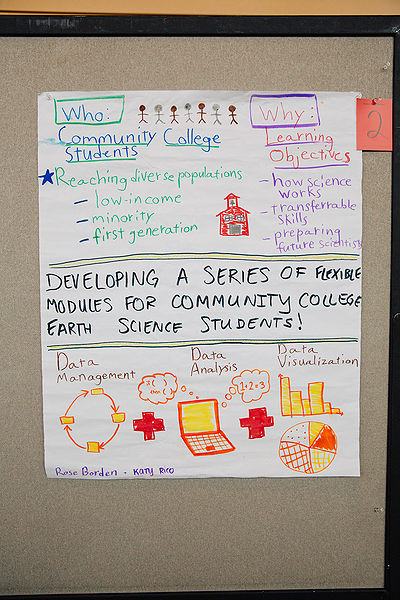 Who:
Community College
Students
Reaching diverse populations
- low-income
- minority
- first generation
Why:
Learning
Objectives
- how science
works
- transferrable
skills
- preparing
future scientists
2
DEVELOPING A SERIES OF FLEXIBLE
MODULES FOR COMMUNITY COLLEGE
EARTH SCIENCE STUDENTS!
Data
Management
Data
Analysis
Data
Visualization
1+2=3
Rose Borden · Katy Rico